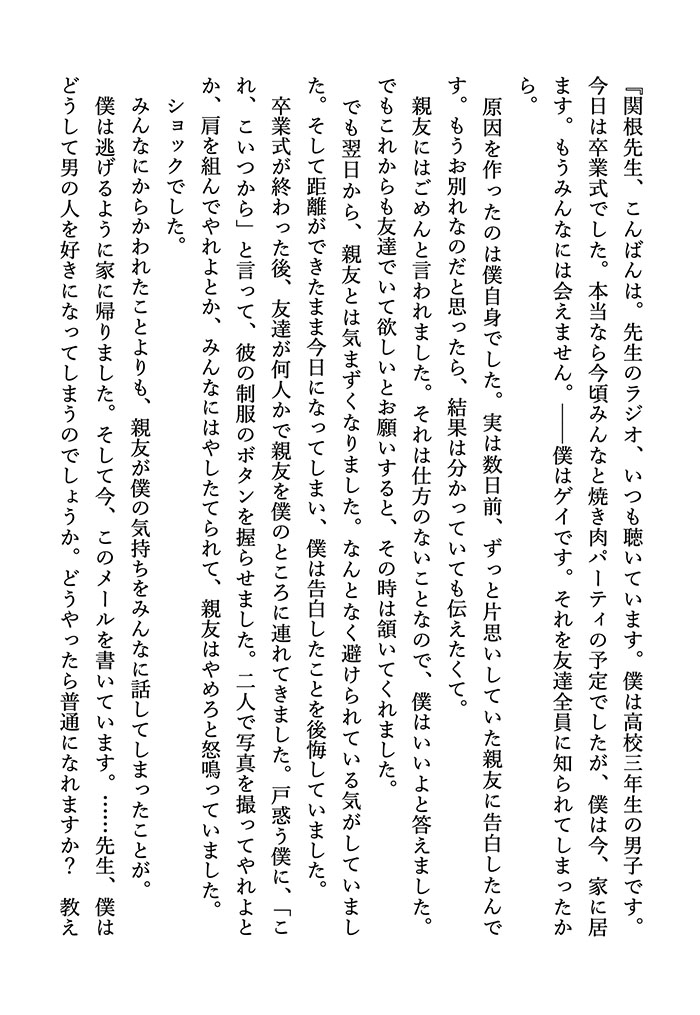 『関根先生、こんばんは。先生のラジオ、いつも聴いています。僕は高校三年生の男子です。
今日は卒業式でした。本当なら今頃みんなと焼き肉パーティの予定でしたが、僕は今、家に居
ます。もうみんなには会えません。――僕はゲイです。それを友達全員に知られてしまったか
ら。
　原因を作ったのは僕自身でした。実は数日前、ずっと片思いしていた親友に告白したんで
す。もうお別れなのだと思ったら、結果は分かっていても伝えたくて。
　親友にはごめんと言われました。それは仕方のないことなので、僕はいいよと答えました。
でもこれからも友達でいて欲しいとお願いすると、その時は頷いてくれました。
　でも翌日から、親友とは気まずくなりました。なんとなく避けられている気がしていまし
た。そして距離ができたまま今日になってしまい、僕は告白したことを後悔していました。
　卒業式が終わった後、友達が何人かで親友を僕のところに連れてきました。戸惑う僕に、「こ
れ、こいつから」と言って、彼の制服のボタンを握らせました。二人で写真を撮ってやれよと
か、肩を組んでやれよとか、みんなにはやしたてられて、親友はやめろと怒鳴っていました。
　ショックでした。
　みんなにからかわれたことよりも、親友が僕の気持ちをみんなに話してしまったことが。
　僕は逃げるように家に帰りました。そして今、このメールを書いています。……先生、僕は
どうして男の人を好きになってしまうのでしょうか。どうやったら普通になれますか？　教え